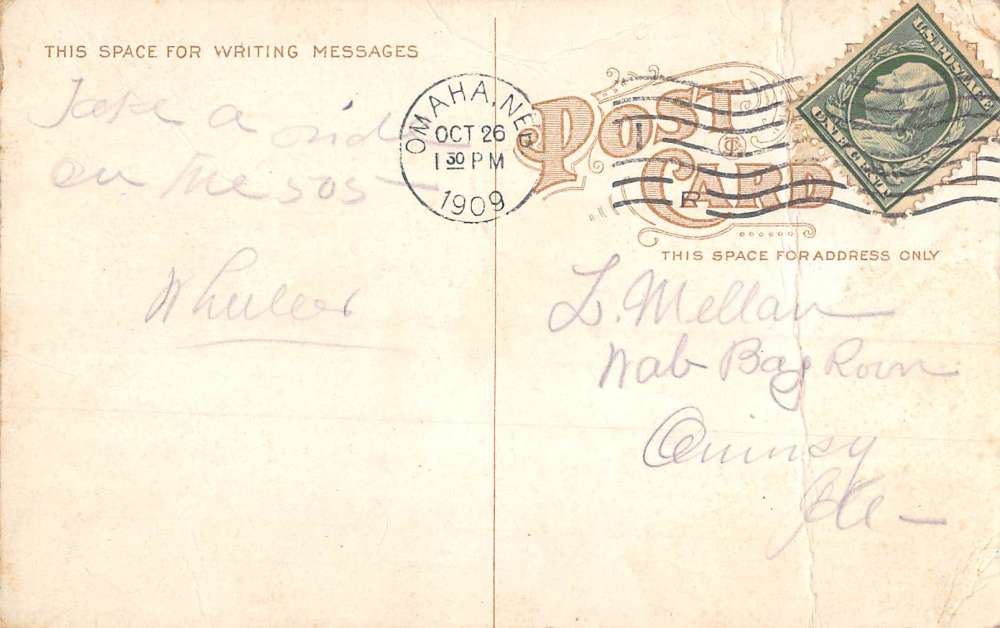 THIS SPACE FOR WRITING MESSAGES
Take a ride
on the 505 —
Wheeler
OMAHA, NEB
OCT 26
1 30 PM
1909
POST
CARD
U.S. POSTAGE
ONE CENT
THIS SPACE FOR ADDRESS ONLY
L. Mellan
Wab Bag Room
Quincy
Ill —